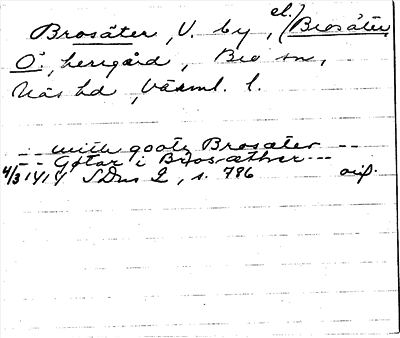 Brosäter, V. by, el. (Brosäter,
Ö., herrgård, Bro sn,
Näs hd, Värml. l.
-- with gooty Brosæter --
-- Gotar i Brosæther ---
4/3 1414 SDns 2, s. 796 avf.